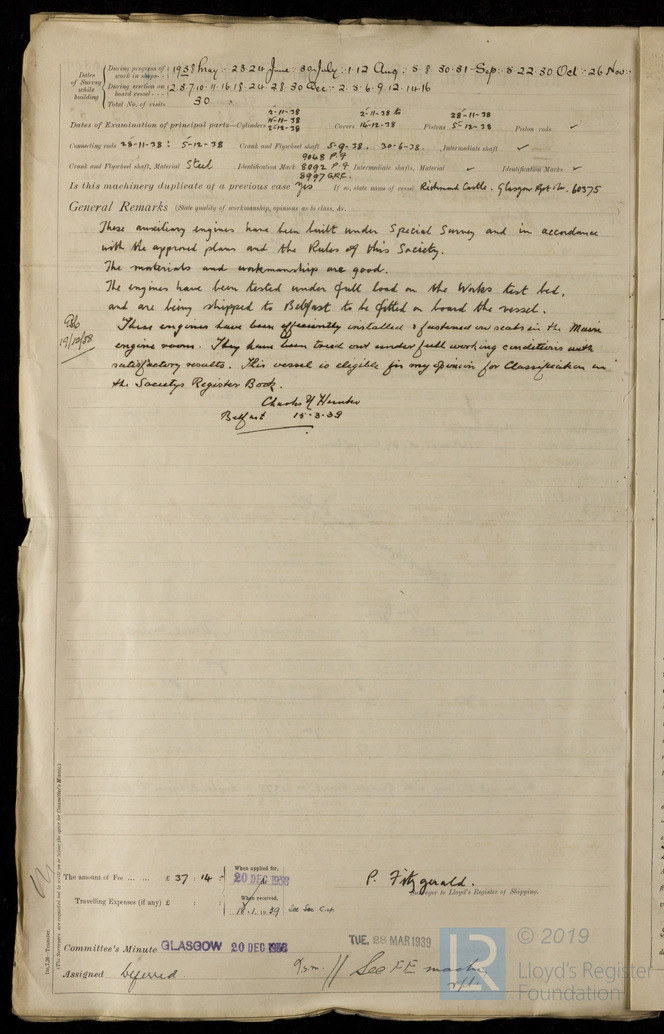 Dates of Survey while building
During progress of work in shops - - 1938 May :- 23.24 June :- 30 July :- 1.12 Aug :- 5.8.30.31 Sep :- 5.22.30 Oct :- 26 Nov :-
During erection on board vessel - - - 2.3.7.10.11.16.18.24.28.30 Dec :- 2.5.6.9.12.14.16
Total No. of visits 30
2-11-38 2-11-38 to 28-11-38
11-11-38
Dates of Examination of principal parts—Cylinders 2-12-38 Covers 16-12-38 Pistons 5-12-38 Piston rods ✓
Connecting rods 28-11-38 : 5-12-38 Crank and Flywheel shaft 5-9-38. 30-6-38. Intermediate shaft ✓
9048 P.F
Crank and Flywheel shaft, Material Steel Identification Mark 8092 P.F Intermediate shafts, Material ✓ Identification Marks ✓
8997 GRC.
Is this machinery duplicate of a previous case Yes If so, state name of vessel Richmond Castle. Glasgow Rpt No. 60375
General Remarks (State quality of workmanship, opinions as to class, &c.
These auxiliary engines have been built under Special Survey and in accordance
with the approved plans and the Rules of this Society.
The materials and workmanship are good.
The engines have been tested under full load on the Works test bed,
and are being shipped to Belfast to be fitted on board the vessel.
These engines have been efficiently installed & fastened on seats in the Main
19/12/38
engine room. They have been tried out under full working conditions with
satisfactory results. This vessel is eligible in my opinion for Classification in
the Societys Register Book.
Charles Hunter
Belfast 15-3-39
The amount of Fee ... ... £ 37 : 14 :
When applied for,
20 DEC 1938
P. Fitzgerald.
Surveyor to Lloyd's Register of Shipping.
Travelling Expenses (if any) £ : :
When received,
18.1.1939
Committee's Minute GLASGOW 20 DEC 1938
TUE. 28 MAR 1939
Assigned Deferred.
See F.E. machy rpt.
1m.7.38—Transfer.
(The Surveyors are requested not to write on or below the space for Committee's Minute.)
LR © 2019
Lloyd's Register
Foundation